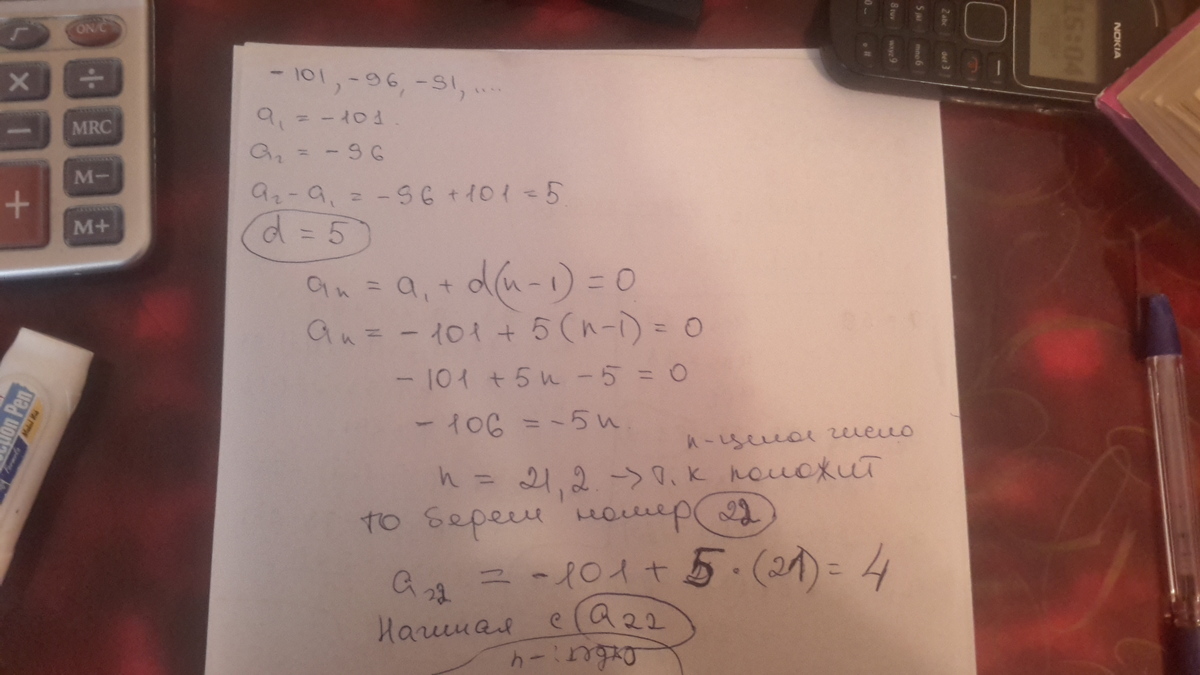 √ ON/C
× ÷
− MRC
+ M−
M+
NOKIA
15:04
-101, -96, -91, ....
a₁ = -101.
a₂ = -96
a₂ - a₁ = -96 + 101 = 5.
d = 5
aₙ = a₁ + d(n-1) = 0
aₙ = -101 + 5(n-1) = 0
-101 + 5n - 5 = 0
-106 = -5n.
n-целое число
n = 21,2. → т.к положит
то берем номер 22
a₂₂ = -101 + 5 · (21) = 4
Начиная с a₂₂
Ответ:
ction Pen